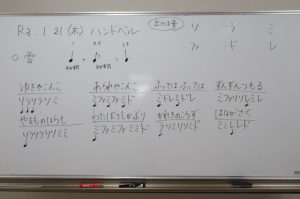 R3. 1 21 (木) ハンドベル
出る音 ソ ラ ミ
ファ ド レ
○ 雪
ゆきやこんこ あられやこんこ ふってはふっては ずんずんつもる
ソラソラソミ ミファミファミド ミドレミドレ
やまものはらも わたぼうしかぶり かれきのこらず はながさく
ソラソラソソミミ ミファミファミミド ラソミソソミド ミミレレド